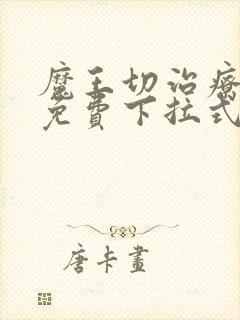 魔王切治療
免費下拉式
唐卡畫